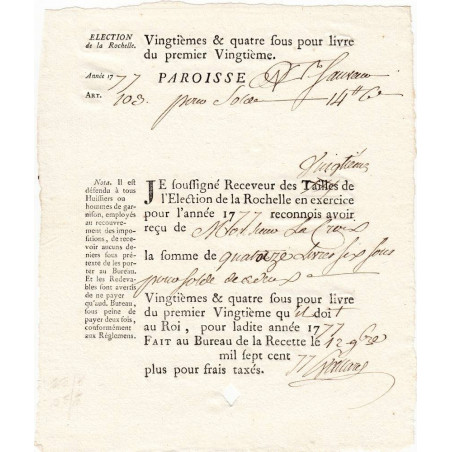 ELECTION
de la Rochelle.
Vingtièmes & quatre sous pour livre
du premier Vingtième.
Année 1777
PAROISSE
ART. 103.
pour Solde 14# 6s
Nota. Il est
défendu à tous
Huissiers ou
hommes de gar-
nison, employés
au recouvre-
ment des im-
positions, de re-
cevoir aucuns de-
niers sous pré-
texte de les por-
ter au Bureau.
Et les Redeva-
bles sont avertis
de ne payer
qu'aud. Bureau,
sous peine de
payer deux fois,
conformément
aux Réglemens.
Vingtièmes
JE soussigné Receveur des Tailles de
l'Election de la Rochelle en exercice
pour l'année 1777 reconnois avoir
reçu de Monsieur La Croix
la somme de quatorze Livres six sous
pour solde de
Vingtièmes & quatre sous pour livre
du premier Vingtième qu'il doit
au Roi, pour ladite année 1777
FAIT au Bureau de la Recette le 12 9bre
mil sept cent 77
plus pour frais taxés.